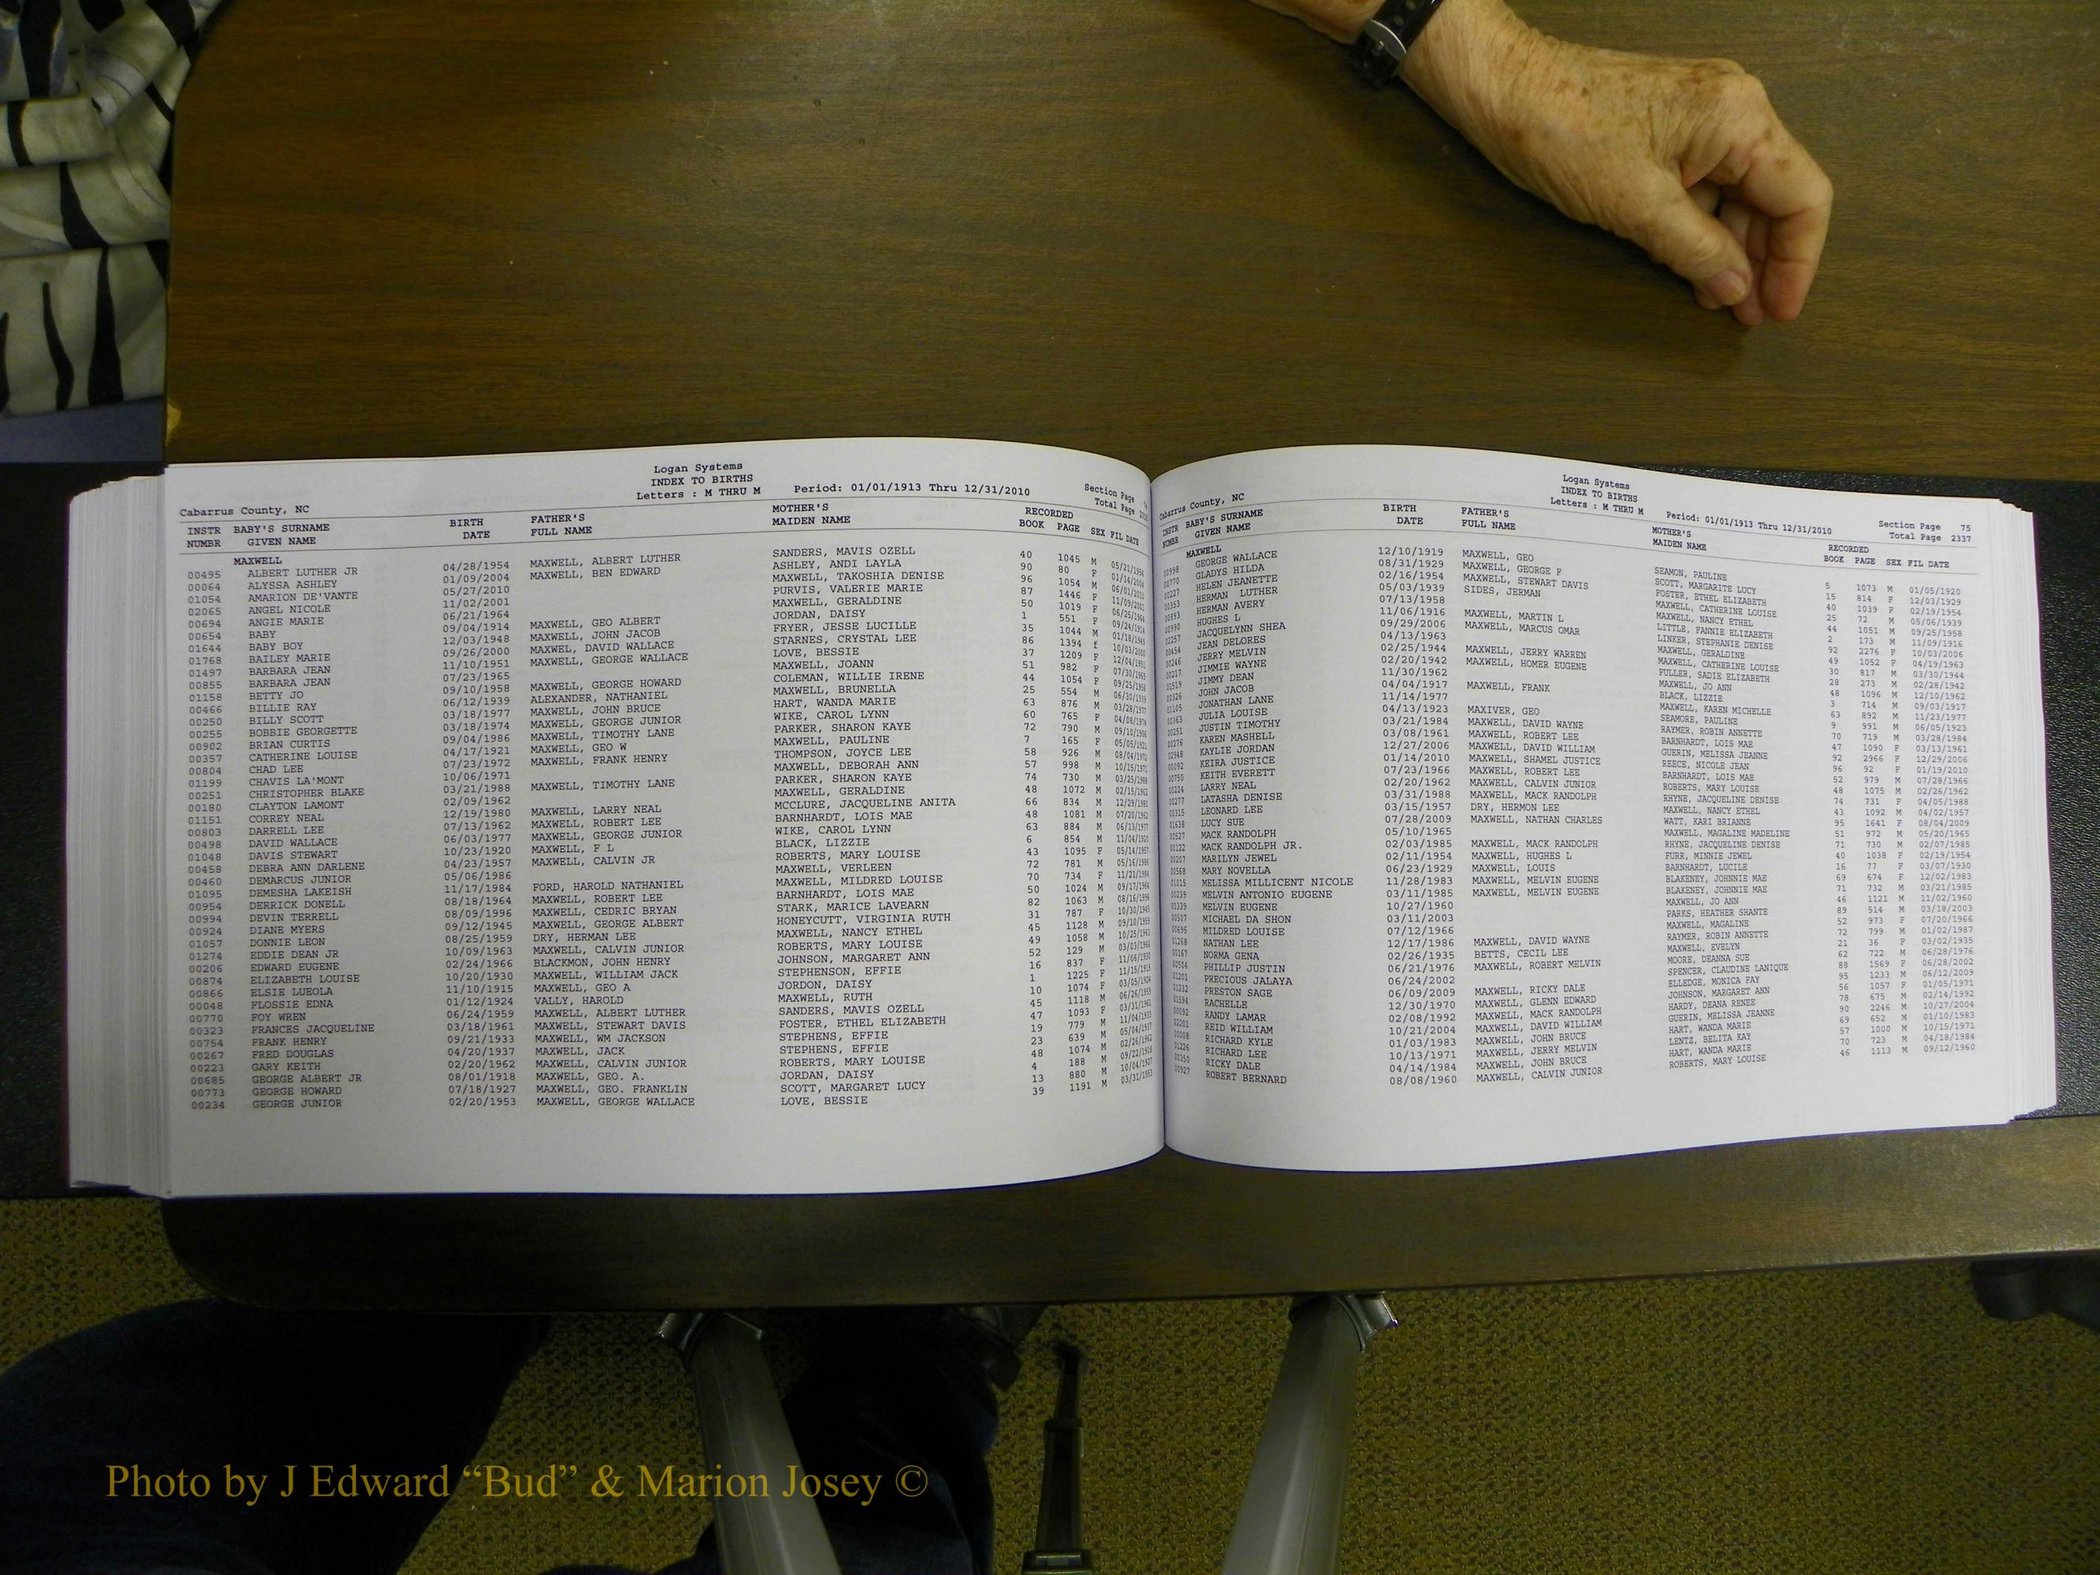 Logan Systems
INDEX TO BIRTHS
Cabarrus County, NC Letters : M THRU M Period: 01/01/1913 Thru 12/31/2010 Section Page
Total Page
INSTR BABY'S SURNAME BIRTH FATHER'S MOTHER'S RECORDED
NUMBR GIVEN NAME DATE FULL NAME MAIDEN NAME BOOK PAGE SEX FIL DATE
MAXWELL
00495 ALBERT LUTHER JR 04/28/1954 MAXWELL, ALBERT LUTHER SANDERS, MAVIS OZELL 40 1045 M 05/21/1954
00064 ALYSSA ASHLEY 01/09/2004 MAXWELL, BEN EDWARD ASHLEY, ANDI LAYLA 90 80 F 01/14/2004
01054 AMARION DE'VANTE 05/27/2010 MAXWELL, TAKOSHIA DENISE 96 1054 M 06/01/2010
02065 ANGEL NICOLE 11/02/2001 PURVIS, VALERIE MARIE 87 1446 F 11/09/2001
00694 ANGIE MARIE 06/21/1964 MAXWELL, GERALDINE 50 1019 F 06/25/1964
00654 BABY 09/04/1914 MAXWELL, GEO ALBERT JORDAN, DAISY 1 551 F 09/24/1914
01644 BABY BOY 12/03/1948 MAXWELL, JOHN JACOB FRYER, JESSE LUCILLE 35 1044 M 01/18/1949
01768 BAILEY MARIE 09/26/2000 MAXWEL, DAVID WALLACE STARNES, CRYSTAL LEE 86 1394 f 10/03/2000
01497 BARBARA JEAN 11/10/1951 MAXWELL, GEORGE WALLACE LOVE, BESSIE 37 1209 F 12/04/1951
00855 BARBARA JEAN 07/23/1965 MAXWELL, JOANN 51 982 F 07/30/1965
01158 BETTY JO 09/10/1958 MAXWELL, GEORGE HOWARD COLEMAN, WILLIE IRENE 44 1054 F 09/25/1958
00466 BILLIE RAY 06/12/1939 ALEXANDER, NATHANIEL MAXWELL, BRUNELLA 25 554 M 06/30/1939
00250 BILLY SCOTT 03/18/1977 MAXWELL, JOHN BRUCE HART, WANDA MARIE 63 876 M 03/28/1977
00255 BOBBIE GEORGETTE 03/18/1974 MAXWELL, GEORGE JUNIOR WIKE, CAROL LYNN 60 765 F 04/08/1974
00902 BRIAN CURTIS 09/04/1986 MAXWELL, TIMOTHY LANE PARKER, SHARON KAYE 72 790 M 09/10/1986
00357 CATHERINE LOUISE 04/17/1921 MAXWELL, GEO W MAXWELL, PAULINE 7 165 F 05/05/1921
00804 CHAD LEE 07/23/1972 MAXWELL, FRANK HENRY THOMPSON, JOYCE LEE 58 926 M 08/04/1972
01199 CHAVIS LA'MONT 10/06/1971 MAXWELL, DEBORAH ANN 57 998 M 10/15/1971
00251 CHRISTOPHER BLAKE 03/21/1988 MAXWELL, TIMOTHY LANE PARKER, SHARON KAYE 74 730 M 03/25/1988
00180 CLAYTON LAMONT 02/09/1962 MAXWELL, GERALDINE 48 1072 M 02/15/1962
01151 CORREY NEAL 12/19/1980 MAXWELL, LARRY NEAL MCCLURE, JACQUELINE ANITA 66 834 M 12/29/1980
00803 DARRELL LEE 07/13/1962 MAXWELL, ROBERT LEE BARNHARDT, LOIS MAE 48 1081 M 07/20/1962
00498 DAVID WALLACE 06/03/1977 MAXWELL, GEORGE JUNIOR WIKE, CAROL LYNN 63 884 M 06/13/1977
01048 DAVIS STEWART 10/23/1920 MAXWELL, F L BLACK, LIZZIE 6 854 M 11/04/1920
00458 DEBRA ANN DARLENE 04/23/1957 MAXWELL, CALVIN JR ROBERTS, MARY LOUISE 43 1095 F 05/14/1957
00460 DEMARCUS JUNIOR 05/06/1986 MAXWELL, VERLEEN 72 781 M 05/16/1986
01095 DEMESHA LAKEISH 11/17/1984 FORD, HAROLD NATHANIEL MAXWELL, MILDRED LOUISE 70 734 F 11/21/1984
00954 DERRICK DONELL 08/18/1964 MAXWELL, ROBERT LEE BARNHARDT, LOIS MAE 50 1024 M 09/17/1964
00994 DEVIN TERRELL 08/09/1996 MAXWELL, CEDRIC BRYAN STARK, MARICE LAVEARN 82 1063 M 08/16/1996
00924 DIANE MYERS 09/12/1945 MAXWELL, GEORGE ALBERT HONEYCUTT, VIRGINIA RUTH 31 787 F 10/30/1945
01057 DONNIE LEON 08/25/1959 DRY, HERMAN LEE MAXWELL, NANCY ETHEL 45 1128 M 09/10/1959
01274 EDDIE DEAN JR 10/09/1963 MAXWELL, CALVIN JUNIOR ROBERTS, MARY LOUISE 49 1058 M 10/25/1963
00206 EDWARD EUGENE 02/24/1966 BLACKMON, JOHN HENRY JOHNSON, MARGARET ANN 52 129 M 03/03/1966
00874 ELIZABETH LOUISE 10/20/1930 MAXWELL, WILLIAM JACK STEPHENSON, EFFIE 16 837 F 11/06/1930
00866 ELSIE LUEOLA 11/10/1915 MAXWELL, GEO A JORDON, DAISY 1 1225 F 11/15/1915
00048 FLOSSIE EDNA 01/12/1924 VALLY, HAROLD MAXWELL, RUTH 10 1074 F
00770 FOY WREN 06/24/1959 MAXWELL, ALBERT LUTHER SANDERS, MAVIS OZELL 45 1118 M 06/26/1959
00323 FRANCES JACQUELINE 03/18/1961 MAXWELL, STEWART DAVIS FOSTER, ETHEL ELIZABETH 47 1093 F 03/31/1961
00754 FRANK HENRY 09/21/1933 MAXWELL, WM JACKSON STEPHENS, EFFIE 19 779 M 11/04/1933
00267 FRED DOUGLAS 04/20/1937 MAXWELL, JACK STEPHENS, EFFIE 23 639 M 05/04/1937
00223 GARY KEITH 02/20/1962 MAXWELL, CALVIN JUNIOR ROBERTS, MARY LOUISE 48 1074 M 02/26/1962
00685 GEORGE ALBERT JR 08/01/1918 MAXWELL, GEO. A. JORDAN, DAISY 4 188 M 09/22/1918
00773 GEORGE HOWARD 07/18/1927 MAXWELL, GEO. FRANKLIN SCOTT, MARGARET LUCY 13 880 M 10/04/1927
00234 GEORGE JUNIOR 02/20/1953 MAXWELL, GEORGE WALLACE LOVE, BESSIE 39 1191 M 03/31/1953
Logan Systems
INDEX TO BIRTHS
Cabarrus County, NC Letters : M THRU M Period: 01/01/1913 Thru 12/31/2010 Section Page 75
Total Page 2337
INSTR BABY'S SURNAME BIRTH FATHER'S MOTHER'S RECORDED
NUMBR GIVEN NAME DATE FULL NAME MAIDEN NAME BOOK PAGE SEX FIL DATE
MAXWELL
00998 GEORGE WALLACE 12/10/1919 MAXWELL, GEO SEAMON, PAULINE 5 1073 M 01/05/1920
00770 GLADYS HILDA 08/31/1929 MAXWELL, GEORGE F SCOTT, MARGARITE LUCY 15 814 F 12/03/1929
00227 HELEN JEANETTE 02/16/1954 MAXWELL, STEWART DAVIS FOSTER, ETHEL ELIZABETH 40 1039 F 02/19/1954
00353 HERMAN LUTHER 05/03/1939 SIDES, JERMAN MAXWELL, CATHERINE LOUISE 25 72 M 05/06/1939
00893 HERMAN AVERY 07/13/1958 MAXWELL, NANCY ETHEL 44 1051 M 09/25/1958
00990 HUGHES L 11/06/1916 MAXWELL, MARTIN L LITTLE, FANNIE ELIZABETH 2 173 M 11/09/1916
02257 JACQUELYNN SHEA 09/29/2006 MAXWELL, MARCUS OMAR LINKER, STEPHANIE DENISE 92 2276 F 10/03/2006
00454 JEAN DELORES 04/13/1963 MAXWELL, GERALDINE 49 1052 F 04/19/1963
00246 JERRY MELVIN 02/25/1944 MAXWELL, JERRY WARREN MAXWELL, CATHERINE LOUISE 30 817 M 03/30/1944
00217 JIMMIE WAYNE 02/20/1942 MAXWELL, HOMER EUGENE FULLER, SADIE ELIZABETH 28 273 M 02/28/1942
01519 JIMMY DEAN 11/30/1962 MAXWELL, JO ANN 48 1096 M 12/10/1962
00326 JOHN JACOB 04/04/1917 MAXWELL, FRANK BLACK, LIZZIE 3 714 M 09/03/1917
01105 JONATHAN LANE 11/14/1977 MAXWELL, KAREN MICHELLE 63 892 M 11/23/1977
00363 JULIA LOUISE 04/13/1923 MAXIVER, GEO SEAMORE, PAULINE 9 991 M 06/05/1923
00251 JUSTIN TIMOTHY 03/21/1984 MAXWELL, DAVID WAYNE RAYMER, ROBIN ANNETTE 70 719 M 03/28/1984
00276 KAREN MASHELL 03/08/1961 MAXWELL, ROBERT LEE BARNHARDT, LOIS MAE 47 1090 F 03/13/1961
02948 KAYLIE JORDAN 12/27/2006 MAXWELL, DAVID WILLIAM GUERIN, MELISSA JEANNE 92 2966 F 12/29/2006
00092 KEIRA JUSTICE 01/14/2010 MAXWELL, SHAMEL JUSTICE REECE, NICOLE JEAN 96 92 F 01/19/2010
00750 KEITH EVERETT 07/23/1966 MAXWELL, ROBERT LEE BARNHARDT, LOIS MAE 52 979 M 07/28/1966
00224 LARRY NEAL 02/20/1962 MAXWELL, CALVIN JUNIOR ROBERTS, MARY LOUISE 48 1075 M 02/26/1962
00277 LATASHA DENISE 03/31/1988 MAXWELL, MACK RANDOLPH RHYNE, JACQUELINE DENISE 74 731 F 04/05/1988
00315 LEONARD LEE 03/15/1957 DRY, HERMON LEE MAXWELL, NANCY ETHEL 43 1092 M 04/02/1957
01638 LUCY SUE 07/28/2009 MAXWELL, NATHAN CHARLES WATT, KARI BRIANNE 95 1641 F 08/04/2009
00527 MACK RANDOLPH 05/10/1965 MAXWELL, MAGALINE MADELINE 51 972 M 05/20/1965
00122 MACK RANDOLPH JR. 02/03/1985 MAXWELL, MACK RANDOLPH RHYNE, JACQUELINE DENISE 71 730 M 02/07/1985
00207 MARILYN JEWEL 02/11/1954 MAXWELL, HUGHES L FURR, MINNIE JEWEL 40 1038 F 02/19/1954
00568 MARY NOVELLA 06/23/1929 MAXWELL, LOUIS BARNHARDT, LUCILE 16 77 F 03/07/1930
01215 MELISSA MILLICENT NICOLE 11/28/1983 MAXWELL, MELVIN EUGENE BLAKENEY, JOHNNIE MAE 69 674 F 12/02/1983
00239 MELVIN ANTONIO EUGENE 03/11/1985 MAXWELL, MELVIN EUGENE BLAKENEY, JOHNNIE MAE 71 732 M 03/21/1985
01339 MELVIN EUGENE 10/27/1960 MAXWELL, JO ANN 46 1121 M 11/02/1960
00507 MICHAEL DA SHON 03/11/2003 PARKS, HEATHER SHANTE 89 514 M 03/18/2003
00695 MILDRED LOUISE 07/12/1966 MAXWELL, MAGALINE 52 973 F 07/20/1966
01268 NATHAN LEE 12/17/1986 MAXWELL, DAVID WAYNE RAYMER, ROBIN ANNETTE 72 799 M 01/02/1987
00167 NORMA GENA 02/26/1935 BETTS, CECIL LEE MAXWELL, EVELYN 21 36 F 03/02/1935
00504 PHILLIP JUSTIN 06/21/1976 MAXWELL, ROBERT MELVIN MOORE, DEANNA SUE 62 722 M 06/28/1976
01201 PRECIOUS JALAYA 06/24/2002 SPENCER, CLAUDINE LANIQUE 88 1569 F 06/28/2002
01232 PRESTON SAGE 06/09/2009 MAXWELL, RICKY DALE ELLEDGE, MONICA FAY 95 1233 M 06/12/2009
01594 RACHELLE 12/30/1970 MAXWELL, GLENN EDWARD JOHNSON, MARGARET ANN 56 1057 F 01/05/1971
00092 RANDY LAMAR 02/08/1992 MAXWELL, MACK RANDOLPH HARDY, DEANA RENEE 78 675 M 02/14/1992
02201 REID WILLIAM 10/21/2004 MAXWELL, DAVID WILLIAM GUERIN, MELISSA JEANNE 90 2246 M 10/27/2004
00008 RICHARD KYLE 01/03/1983 MAXWELL, JOHN BRUCE HART, WANDA MARIE 69 652 M 01/10/1983
01226 RICHARD LEE 10/13/1971 MAXWELL, JERRY MELVIN LENTZ, BELITA KAY 57 1000 M 10/15/1971
00350 RICKY DALE 04/14/1984 MAXWELL, JOHN BRUCE HART, WANDA MARIE 70 723 M 04/18/1984
00927 ROBERT BERNARD 08/08/1960 MAXWELL, CALVIN JUNIOR ROBERTS, MARY LOUISE 46 1113 M 09/12/1960
Photo by J Edward “Bud” & Marion Josey ©